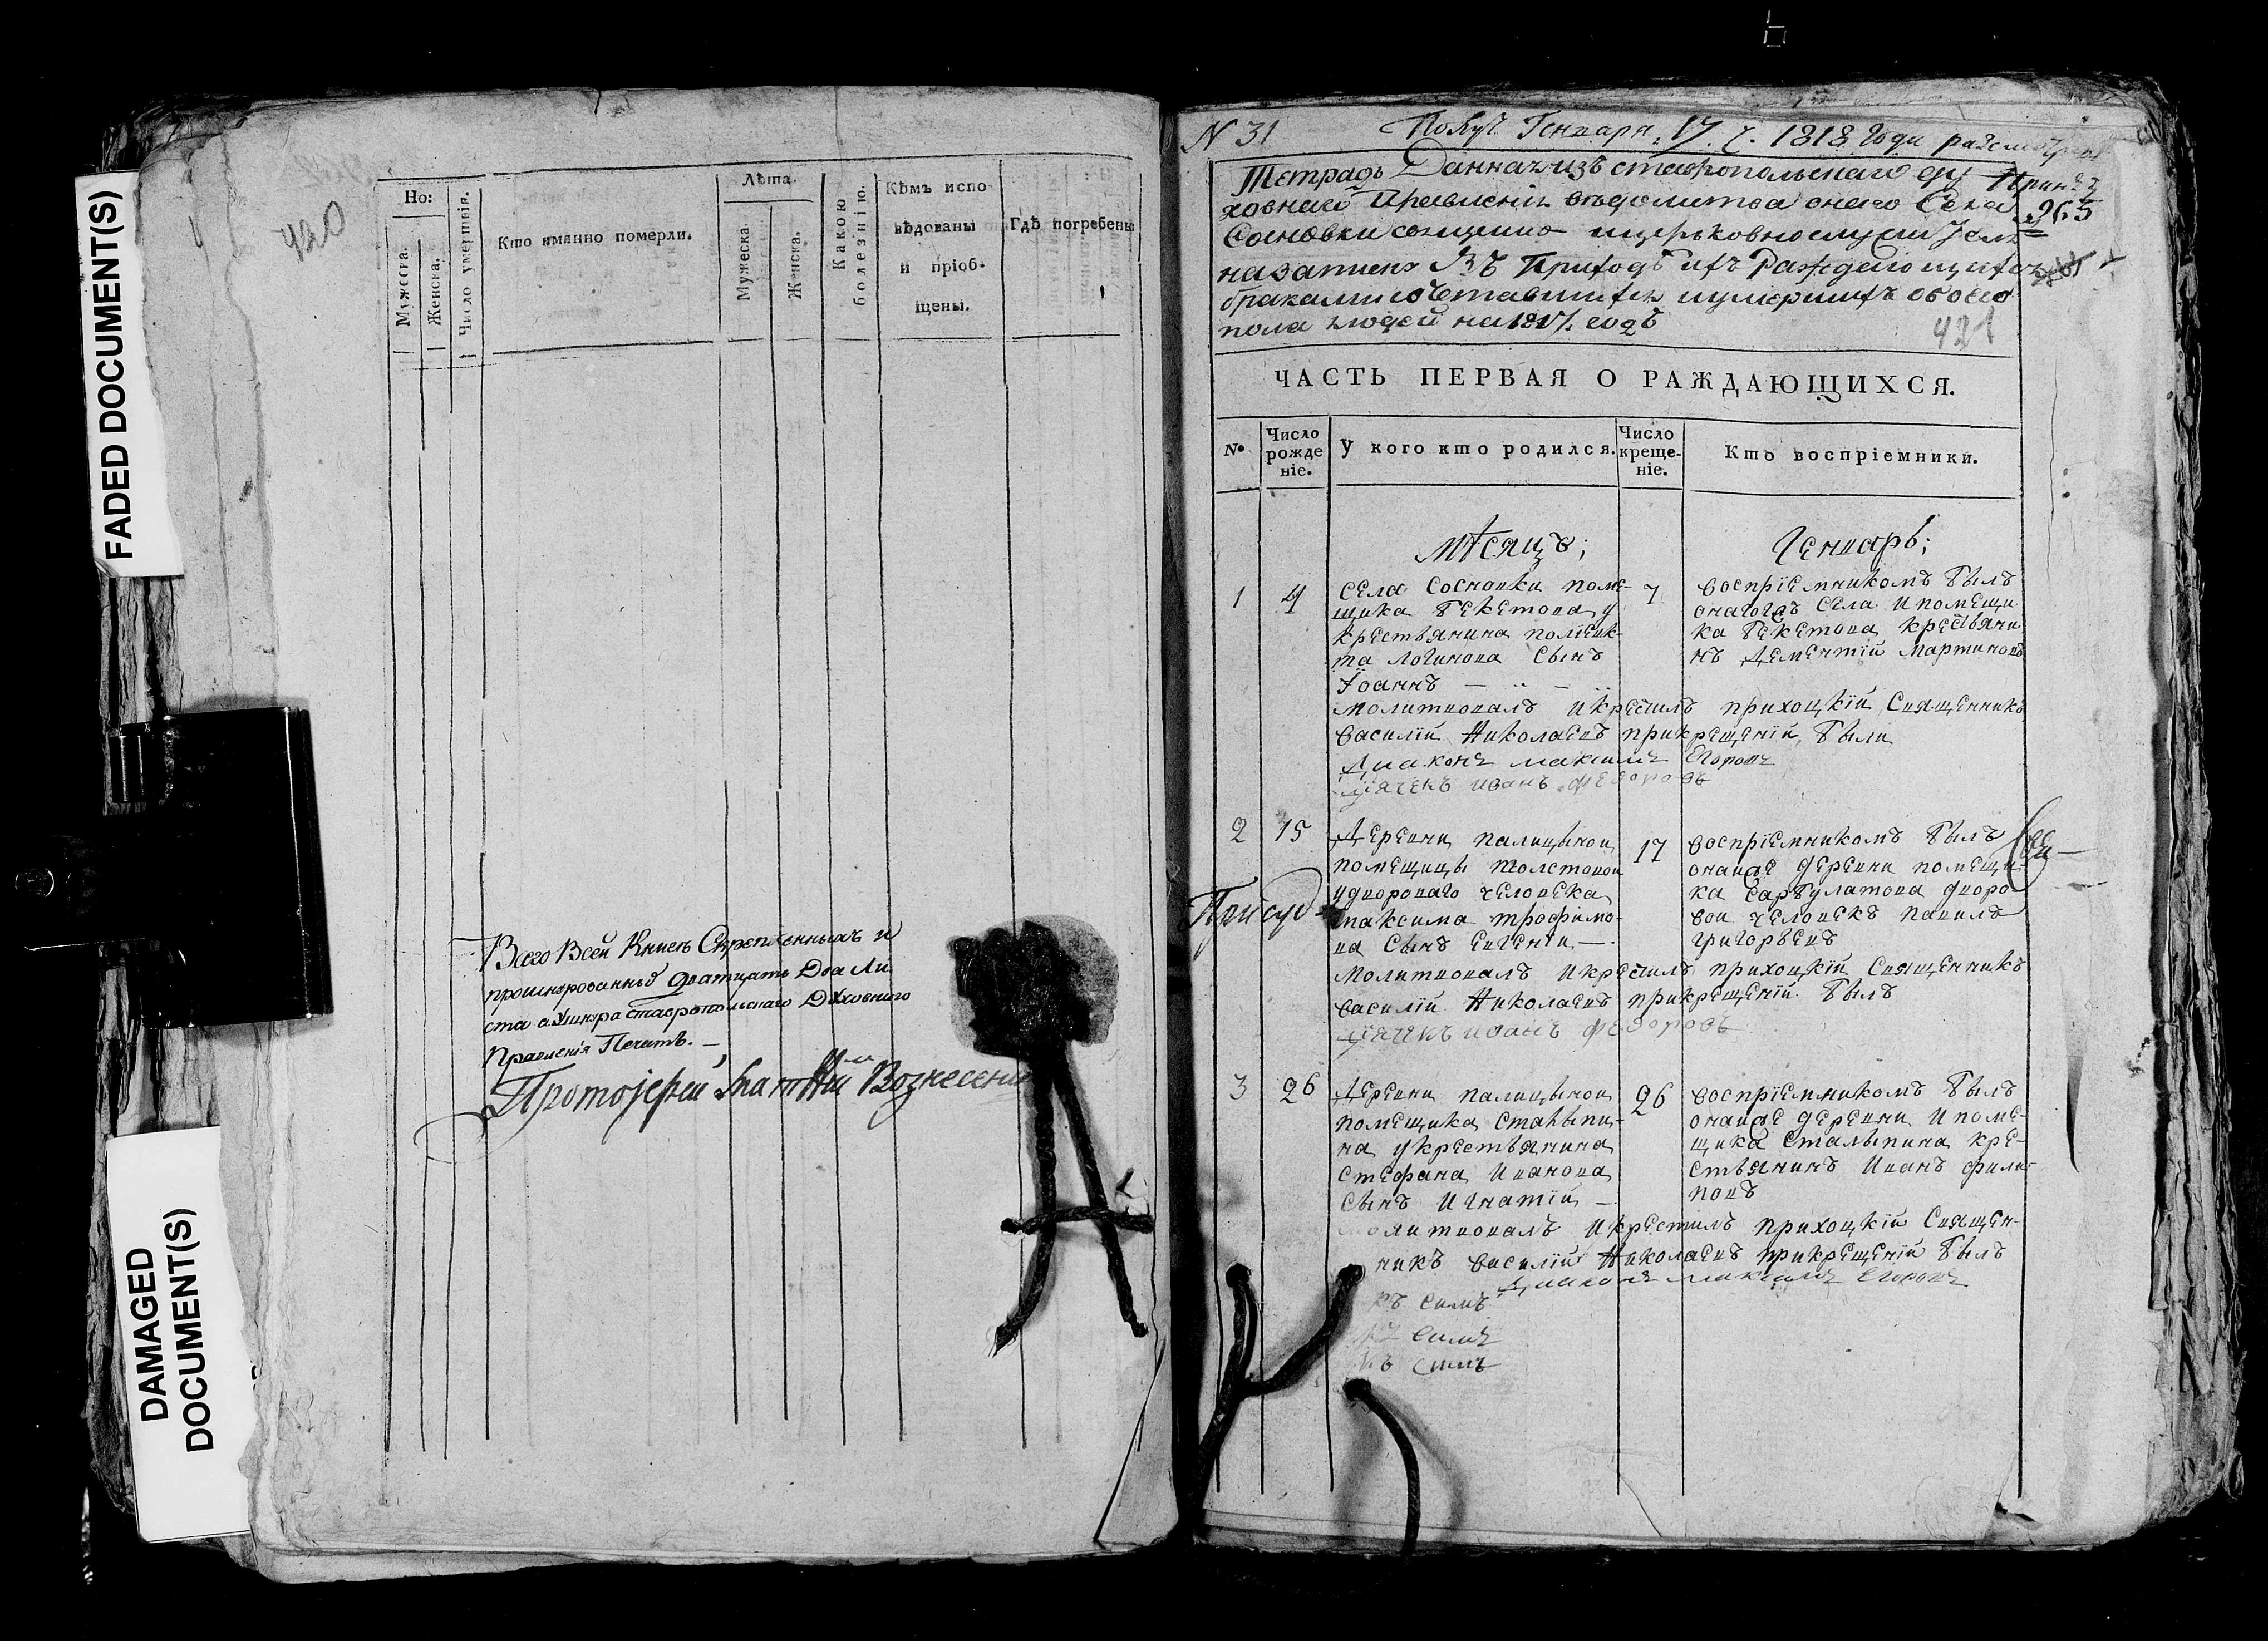 FADED DOCUMENT(S)
DAMAGED
DOCUMENT(S)
420
Но:
Мужеска.
Женска.
Число умертвія.
Кто имянно померли.
Лѣта.
Мужеска.
Женска.
Какою
болезнію.
Кѣмъ испо
вѣдованы
и пріоб-
щены.
Гдѣ погребены
Всего Всей Книге Скрепленныхъ и
прошнурованныхъ Дватцать Два Ли
ста Ставропольскаго Духовного
Правленія Печать. —
Протоіерей Матвѣй Вознесенскій
N 31
Получ. Генваря 17. ч. 1818 Года
Тетрадь Данная изъ ставропольскаго ду
ховнаго Правленія ведомства онаго Села
Сосновки священно ицерьковнослужителемъ
на записку Въ Приходѣ ихъ Раждающихся
браками сочетавшихся иумершихъ обоего
пола людей на 1817. годъ
365
421
ЧАСТЬ ПЕРВАЯ О РАЖДАЮЩИХСЯ.
№
Число
рожде
ніе.
У кого кто родился.
Число
креще-
ніе.
Кто воспріемники.
Мѣсяцъ;
Генварь;
1
4
Села Сосновки поме-
щика Бекетова у
крестьянина
Логинова Сынъ
Іоаннъ —
7
воспріемникомъ былъ
онагожъ Села и помещи
ка Бекетова крестьяни
нъ Дементій Мартиновъ
молитвовалъ икрестилъ прихоцкій Священникъ
василій Николаевъ прикрещеній были
Диаконъ максимъ Егоровъ
дьячекъ иванъ федоровъ
2
15
Деревни палицыной
помещицы толстовой
удворового человека
максима трофимо-
ва Сынъ Евгеній —
17
воспріемникомъ былъ
онойже деревни помещи-
ка Сарбулатова дворо
вой человекъ павилъ
григорьевъ
молитвовалъ икрестилъ прихоцкій Священникъ
василій Николаевъ прикрещеній былъ
дьячекъ иванъ федоровъ
3
26
Деревни палицыной
помещика Сталыпи-
на укрестьянина
Стефана Иванова
Сынъ Игнатій —
26
воспріемникомъ былъ
онойже деревни и поме-
щика Сталыпина кре-
стьянинъ Иванъ фили-
повъ
молитвовалъ икрестилъ прихоцкій Священ-
никъ василій Николаевъ прикрещеній былъ
Диаконъ максимъ Егоровъ
къ симъ
къ симъ
къ симъ